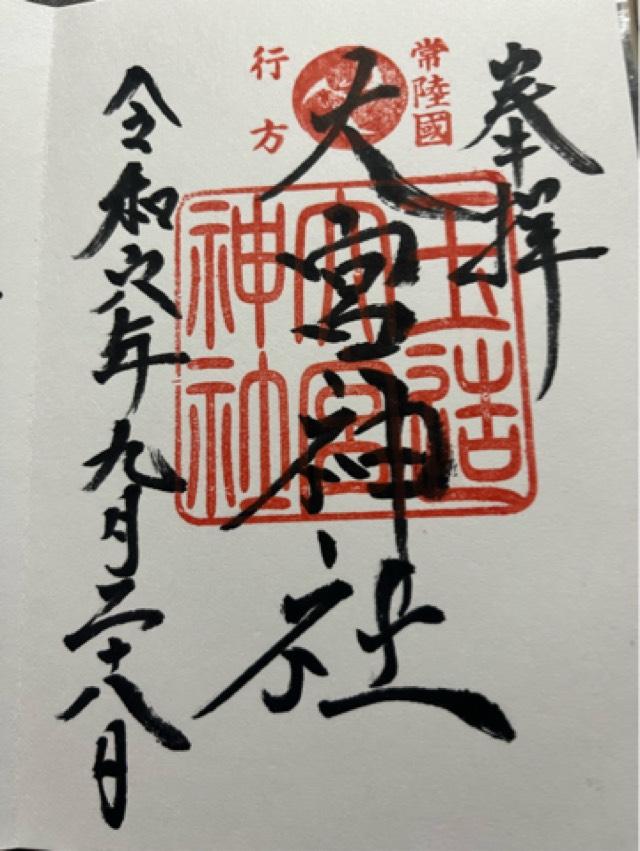 奉拝
常陸國
行方
大宮神社
玉造
大宮
神社
令和六年九月二十八日